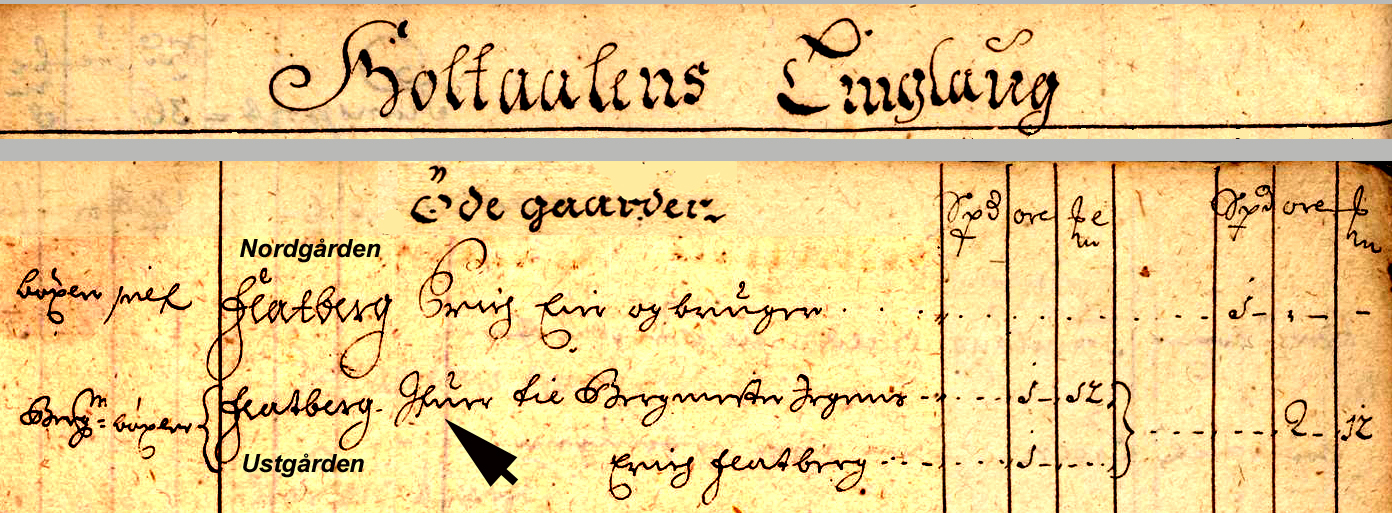 Holtaalens Tinglaug
Öde gaarder
Spd ore
Spd ore
Nordgården
böxer self Flatberg Erich Eier og bruger 1 - , - -
Berg böxer Flatberg. Bergmester Irgens 1 - 12
2 - 12
Ustgården
Erich Flatberg 1 -